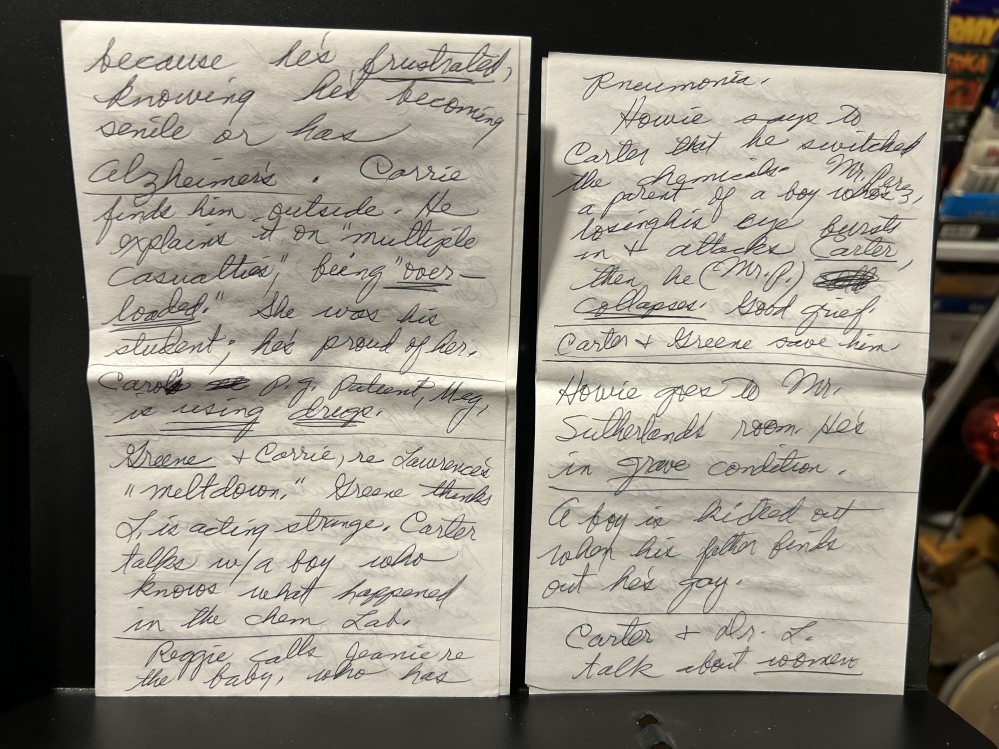 because he's frustrated,
knowing he's becoming
senile or has
alzheimer's. Corrie
finds him outside. He
explains it on "multiple
casualties," being "over-
loaded." She was his
student; he's proud of her.
Carol's P.g. patient, Meg,
is using drugs.
Greene + Corrie, re Lawrence's
"meltdown." Greene thinks
L. is acting strange. Carter
talks w/a boy who
knows what happened
in the chem Lab.
Reggie calls Jeanie re
the baby, who has
Pneumonia.
Howie says to
Carter that he switched
the chemicals. Mr. Perez,
a parent of a boy who's
losing his eye bursts
in + attacks Carter,
then he (Mr. P.)
collapses. Good grief.
Carter + Greene save him
Howie goes to Mr.
Sutherland's room. He's
in grave condition.
A boy is kicked out
when his father finds
out he's gay.
Carter + Dr. L.
talk about women
RMY